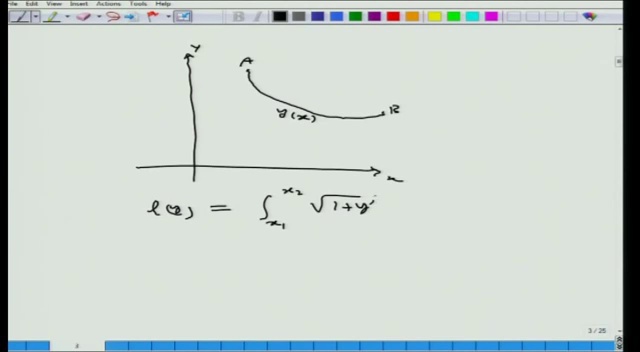 File Edit View Insert Actions Tools Help
B
Y
A
B
y(x)
x
l(y) = ∫_{x₁}^{x₂} √1+y'
3 / 25
3